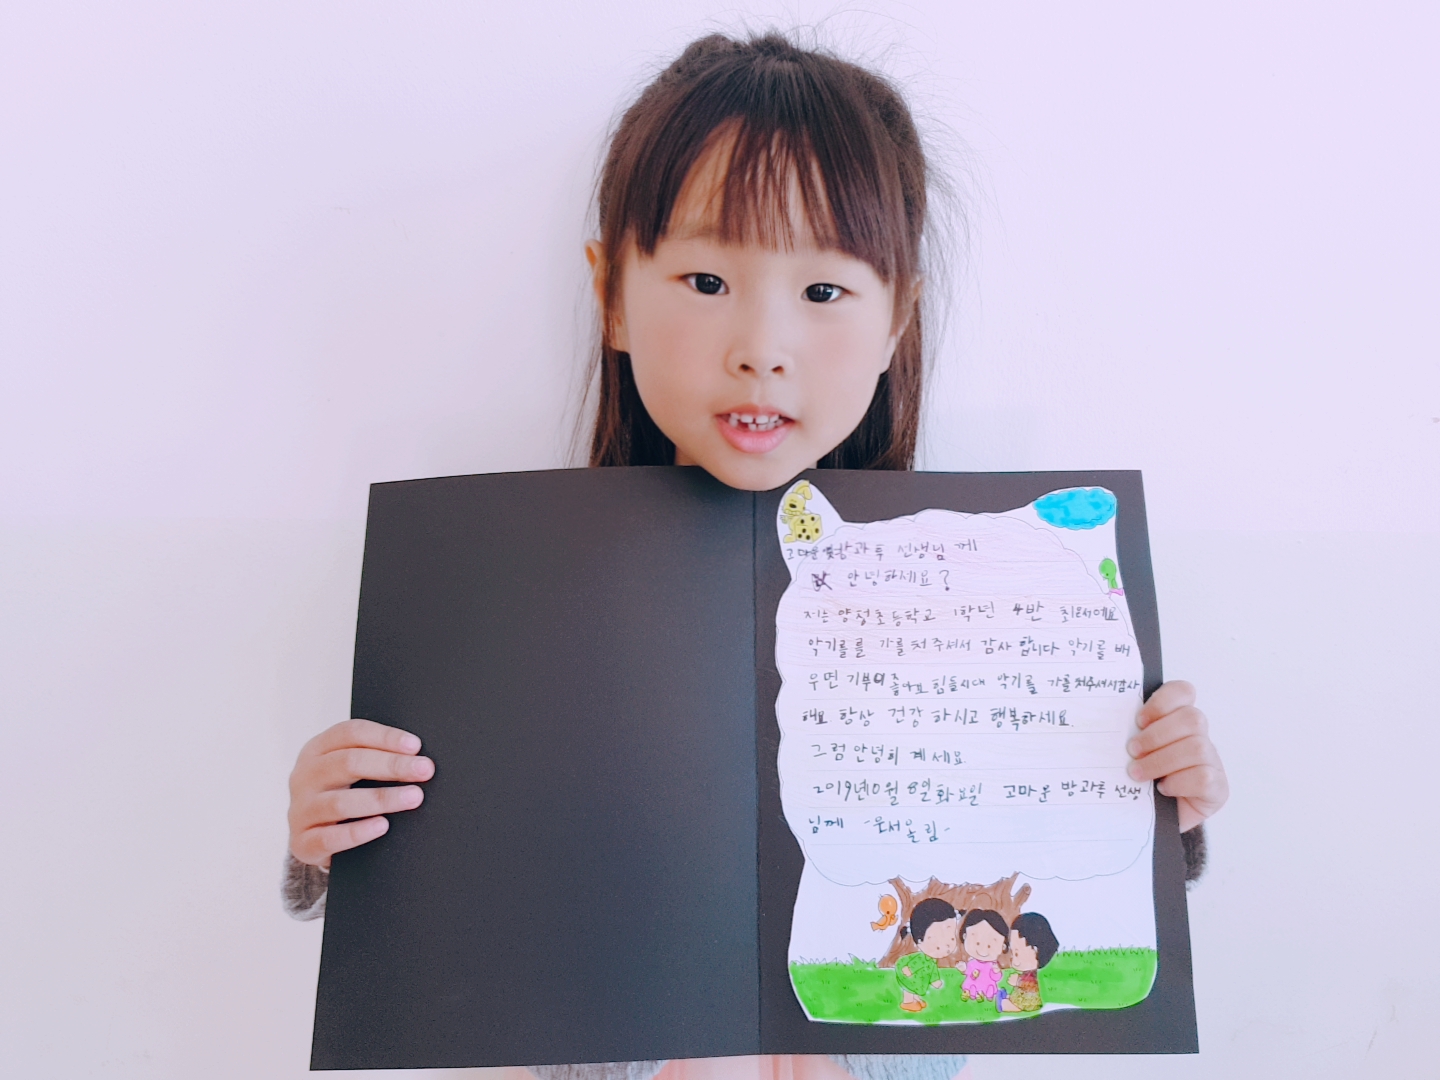 고마운 방과후 선생님께
안녕하세요?
저는 양청초등학교 1학년 4반 최윤서예요
악기를를 가르쳐주셔서 감사합니다 악기를 배
우면 기부이 좋아요 힘들시대 악기를 가를쳐주셔서감사
해요 항상 건강 하시고 행복하세요.
그럼 안녕히 계세요.
2019년10월 8일화요일 고마운 방과후 선생
님께 -윤서올림-